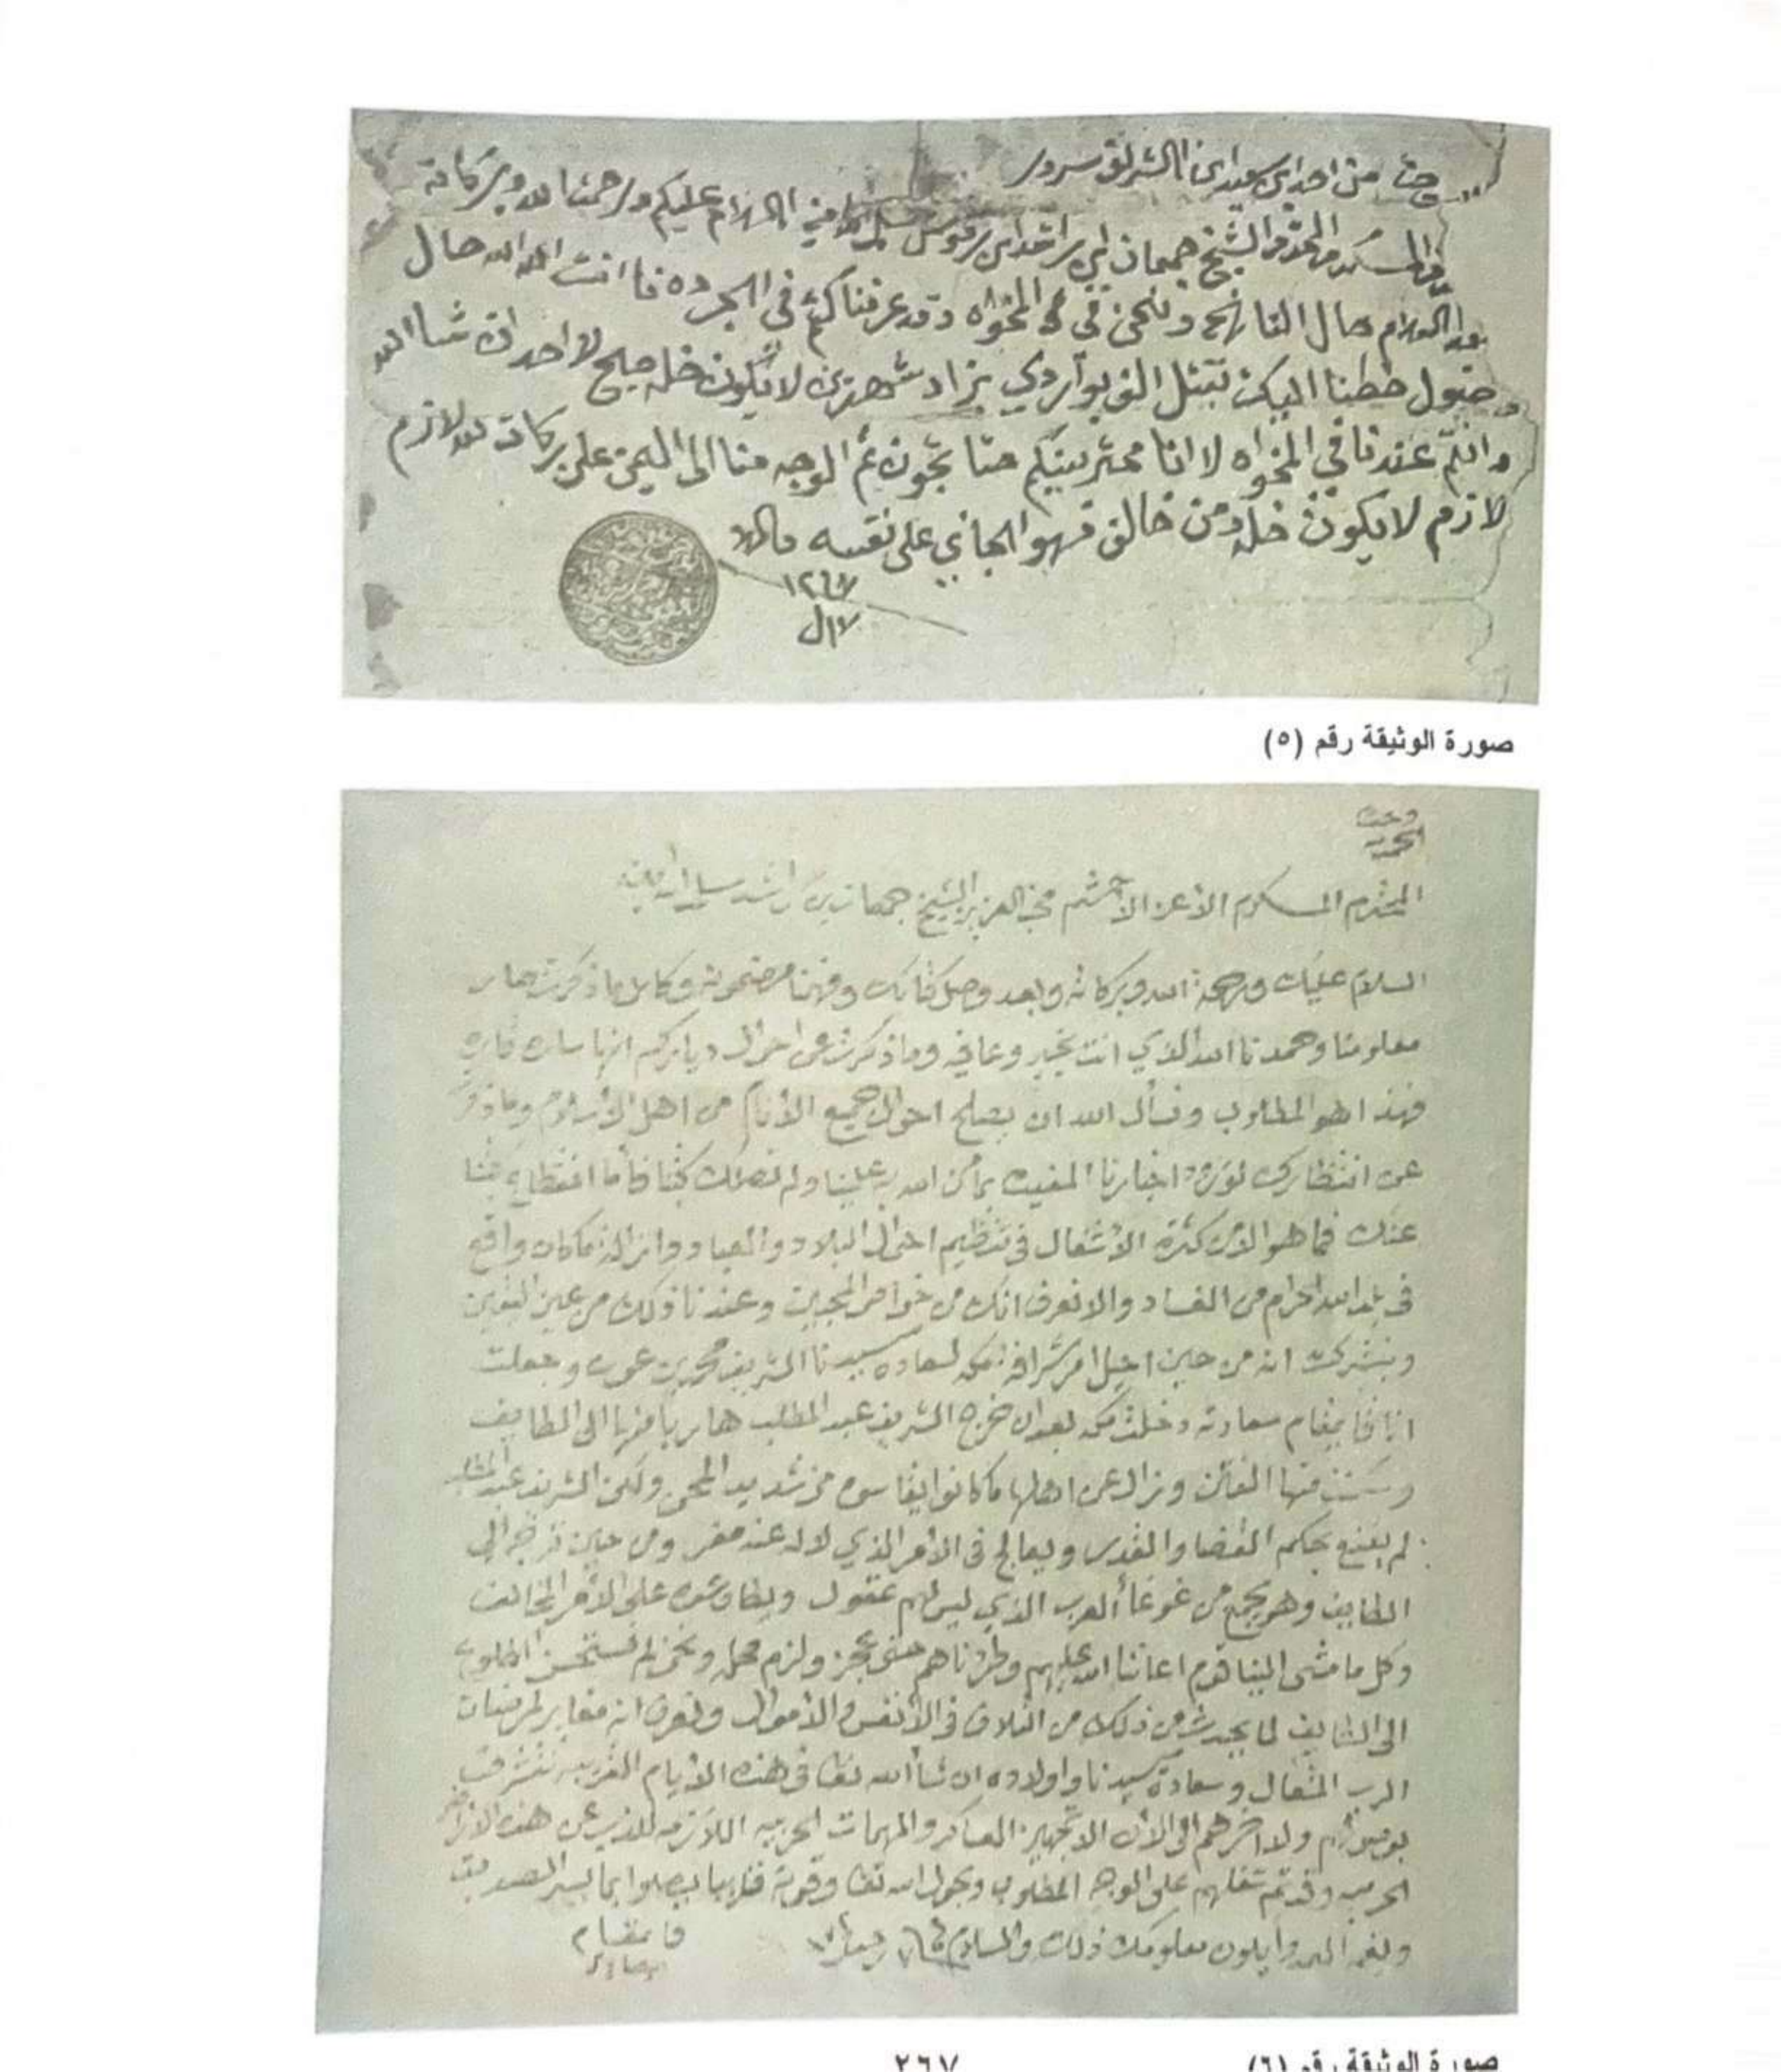 من احمد ابن سعيد ابن الشريف سرور
المكرم المحترم الشيخ جمعان ابن راشد ابن رقوش سلمه الله امين السلام عليكم ورحمة الله وبركاته
بعد السلام حال التاريخ ونحن في المخواه وقد عرفناكم في الجرده فا انت الله الله حال
وصول خطنا اليكن تقبل الف بواردي بزاد شهرين لا يكون خله صيح لا احد ان شا الله
وانتم عندنا في المخواه لا انا محتريينكم حتا تجون ثم الوجه منا الى اليمن على بركات الله لازم
لازم لا يكون خله ومن خالف فهو الجاني على نفسه والسلام
صورة الوثيقة رقم (٥)
المحترم المكرم الأعز الأحشم محب العزيز الشيخ جمعان بن راشد سلمه الله
السلام عليك ورحمة الله وبركاته وبعد وصل كتابك وفهمنا مضمونه وكامل ما ذكرت صار
معلومنا وحمدنا الله الذي انت بخير وعافيه وما ذكرت عن احوال دياركم انها ساره قاره
فهذا هو المطلوب ونسأل الله ان يصلح احوال جميع الأنام من اهل الأسلام وما ذكرت
عن انتظارك لورود اخبارنا المفيده بما من الله به علينا ولم تصلك كتبنا فأما انقطاع كتبنا
عنك فما هو الا من كثرة الأشغال في تنظيم احوال البلاد والعباد وازالة ما كان واقع
في بلد الله الحرام من الفساد والا نعرف انك من خواص المحبين وعندنا ذلك من عين اليقين
ونبشرك انه من حين احيل امر شرافة مكه لسعادة سيدنا الشريف محمد بن عون وجعلت
انا قايمقام سعادته دخلت مكه بعد ان خرج الشريف عبد المطلب هاربا منها الى الطايف
وسكنت منها الفتن وزال عن اهلها ما كانوا يقاسوه من شديد المحن ولكن الشريف عبد المطلب
لم يقنع بحكم القضا والقدر ويعالج في الأمر الذي لا له عنه مفر ومن حين توجه الى
الطايف وهو يجمع من غوغأ العرب الذي ليس لهم عقول ويطاوعوه على الأمر المخالف
وكل ما مشى الينا قوم اعاننا الله عليهم وطردناهم حتى عجز ولزم محله ونحن لم نستحسن الطلوع
الى الطايف لما يحدث من ذلك من التلاف في الأنفس والأموال ونعرف انه مغاير لمرضات
الرب المتعال وسعادة سيدنا واولاده ان شأ الله تعا في هذه الأيام القريبه نتشرف
بوصولهم ولا اخرهم الى الان الا تجهيز العساكر والمهمات الحربيه اللازمه للذب عن هذه الاراضي
الحرميه وقد تم شغلهم على الوجه المطلوب وبحول الله تعا وقوته قريبا يصلوا بما يسر الصديق
ويغم العدو ايكون معلومك ذلك والسلام
قايمقام
٢٦٧
صورة الوثيقة رقم (٦)